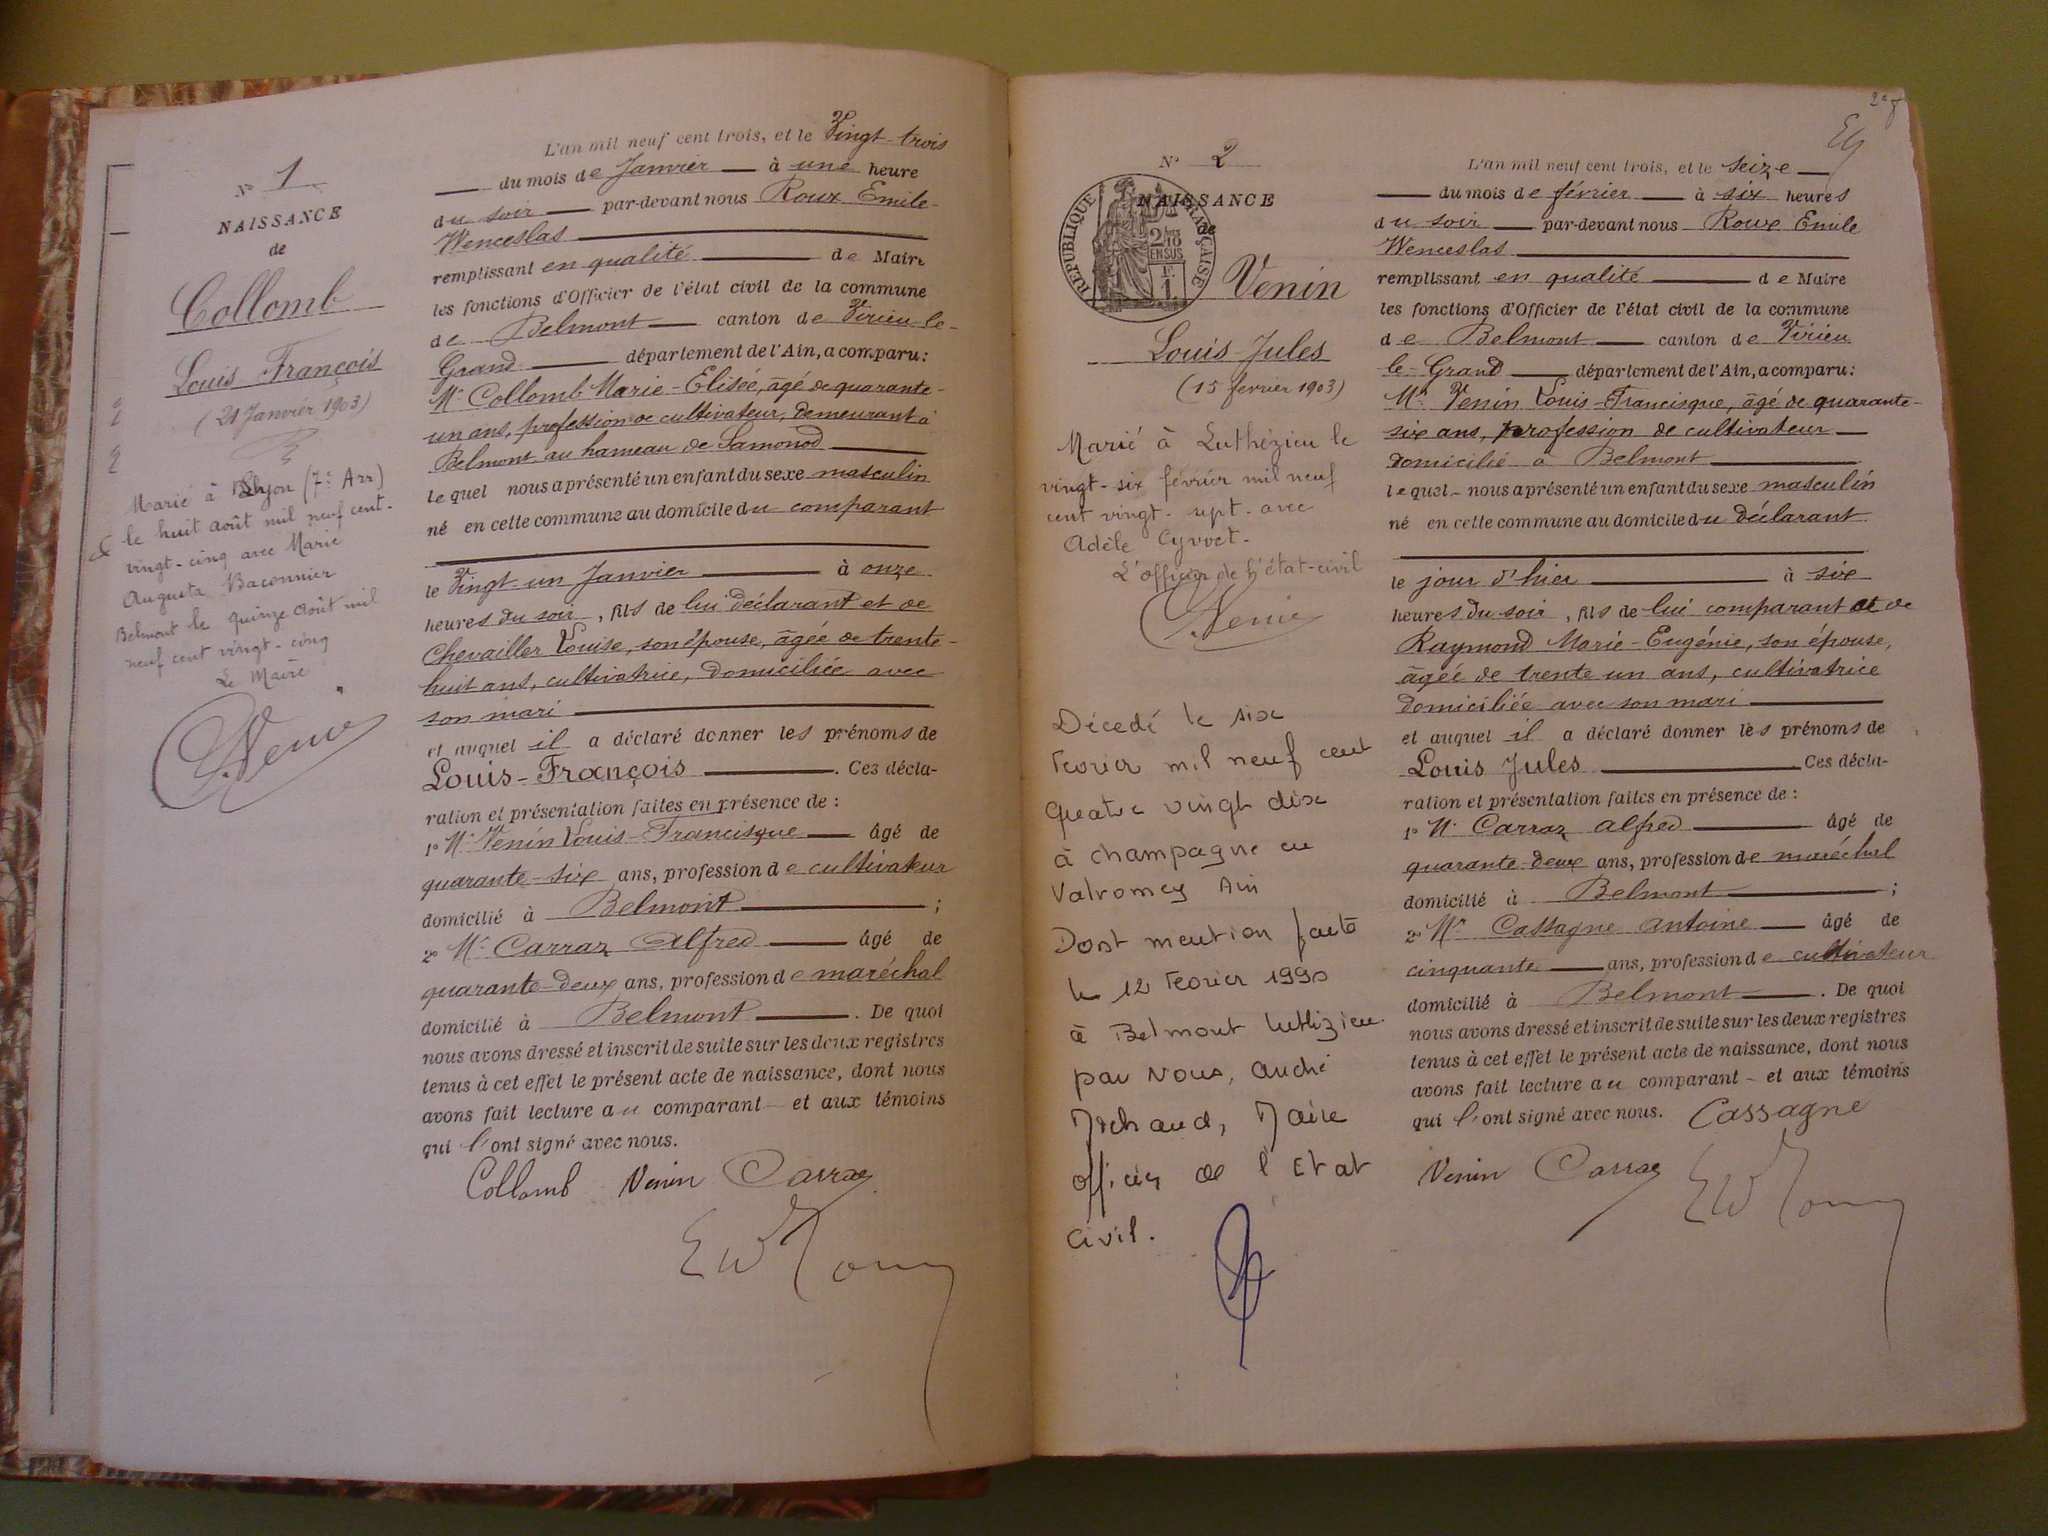 N° 1
NAISSANCE
de
Collomb
Louis François
(21 Janvier 1903)
Marié à Lyon (7e Arr)
le huit août mil neuf cent
vingt-cinq avec Marie
Augusta Baconnier
Belmont le quinze août mil
neuf cent vingt-cinq
Le Maire
L'an mil neuf cent trois, et le Vingt-trois
du mois de Janvier à une heure
du soir par-devant nous Roux Emile
Wenceslas
remplissant en qualité de Maire
les fonctions d'Officier de l'état civil de la commune
de Belmont canton de Virieu-le-
Grand département de l'Ain, a comparu:
Mr Collomb Marie-Elisée, âgé de quarante-
un ans, profession de cultivateur, demeurant à
Belmont au hameau de Samonod
lequel nous a présenté un enfant du sexe masculin
né en cette commune au domicile du comparant
le Vingt un Janvier à onze
heures du soir, fils de lui déclarant et de
Chevailler Louise, son épouse, âgée de trente-
huit ans, cultivatrice, domiciliée avec
son mari
et auquel il a déclaré donner les prénoms de
Louis-François. Ces décla-
ration et présentation faites en présence de:
1° Mr Venin Louis-Francisque âgé de
quarante-six ans, profession de cultivateur
domicilié à Belmont;
2° Mr Carraz Alfred âgé de
quarante-deux ans, profession de maréchal
domicilié à Belmont. De quoi
nous avons dressé et inscrit de suite sur les deux registres
tenus à cet effet le présent acte de naissance, dont nous
avons fait lecture au comparant et aux témoins
qui l'ont signé avec nous.
Collomb Venin Carraz
N° 2
NAISSANCE
de
RÉPUBLIQUE FRANÇAISE
2/10 EN SUS
1 F.
Venin
Louis Jules
(15 février 1903)
Marié à Luthézieu le
vingt-six février mil neuf
cent vingt-sept avec
Adèle Cyvoct-
L'officier de l'état-civil
Décedé le six
Fevrier mil neuf cent
quatre vingt dix
à champagne en
Valromey Ain
Dont mention faite
le 12 Fevrier 1990
à Belmont Luthézieu
par Nous, André
Maire
officier de l'Etat
civil.
L'an mil neuf cent trois, et le seize
du mois de février à six heures
du soir par-devant nous Roux Emile
Wenceslas
remplissant en qualité de Maire
les fonctions d'Officier de l'état civil de la commune
de Belmont canton de Virieu
le-Grand département de l'Ain, a comparu:
Mr Venin Louis-Francisque, âgé de quarante-
six ans, profession de cultivateur
domicilié à Belmont
lequel nous a présenté un enfant du sexe masculin
né en cette commune au domicile du déclarant
le jour d'hier à six
heures du soir, fils de lui comparant et de
Raymond Marie-Eugénie, son épouse,
âgée de trente un ans, cultivatrice
domiciliée avec son mari
et auquel il a déclaré donner les prénoms de
Louis Jules Ces décla-
ration et présentation faites en présence de:
1° Mr Carraz Alfred âgé de
quarante-deux ans, profession de maréchal
domicilié à Belmont;
2° Mr Cassagne Antoine âgé de
cinquante ans, profession de cultivateur
domicilié à Belmont. De quoi
nous avons dressé et inscrit de suite sur les deux registres
tenus à cet effet le présent acte de naissance, dont nous
avons fait lecture au comparant et aux témoins
qui l'ont signé avec nous. Cassagne
Venin Carraz